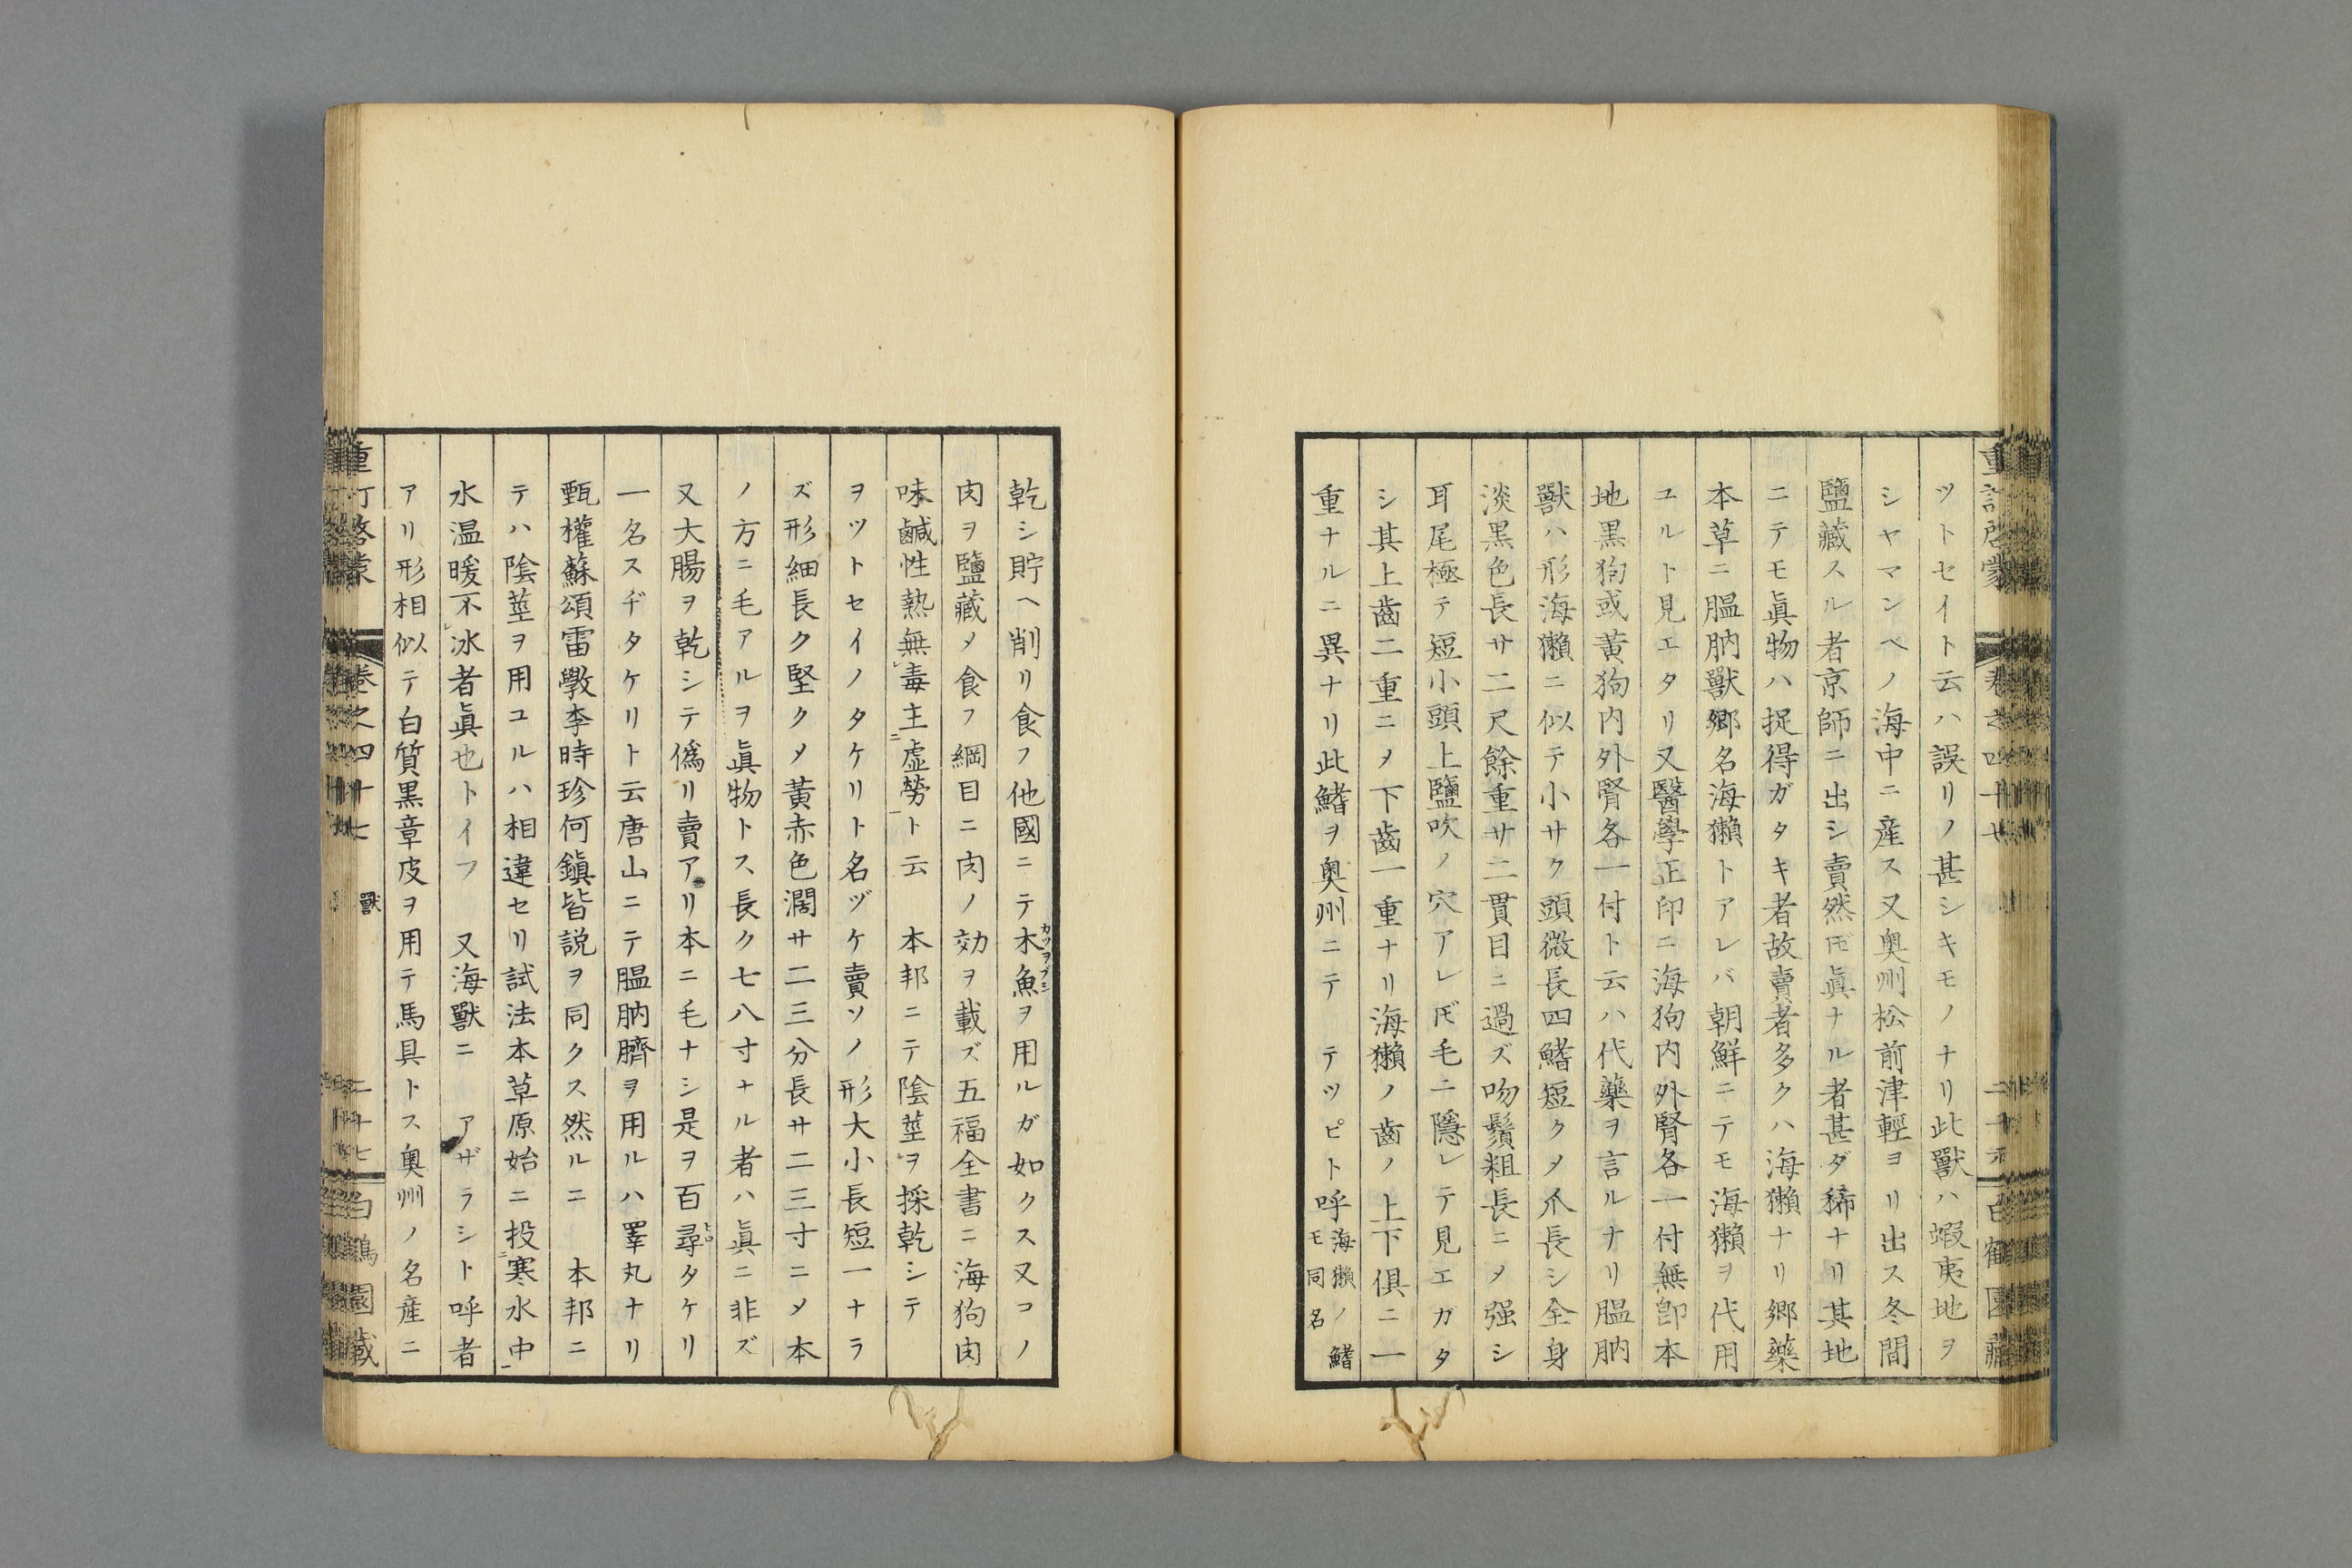 ツトセイト云ハ誤リノ甚シキモノナリ此獸ハ蝦夷地ヲ
シヤマンベノ海中ニ産ス又奥州松前津輕ヨリ出ス冬間
鹽藏スル者京師ニ出シ賣然𪜈眞ナル者甚ダ稀ナリ其地
ニテモ眞物ハ捉得ガタキ者故賣者多クハ海獺ナリ郷藥
本草ニ膃肭獸郷名海獺トアレバ朝鮮ニテモ海獺ヲ代用
ユルト見エタリ又醫學正印ニ海狗内外腎各一付無卽本
地黒狗或黄狗内外腎各一付ト云ハ代藥ヲ言ルナリ膃肭
獸ハ形海獺ニ似テ小サク頭微長四鰭短クメ爪長シ全身
淡黒色長サ二尺餘重サ二貫目ニ過ズ吻鬚粗長ニメ强シ
耳尾極テ短小頭上鹽吹ノ穴アレ𪜈毛ニ隱レテ見エガタ
シ其上齒二重ニメ下齒一重ナリ海獺ノ齒ノ上下俱ニ一
重ナルニ異ナリ此鰭ヲ奥州ニテ テツピト呼海獺ノ鰭モ同名
乾シ貯ヘ削リ食フ他國ニテ木魚カツヲブシヲ用ルガ如クス又コノ
肉ヲ鹽藏メ食フ綱目ニ肉ノ効ヲ載ズ五福全書ニ海狗肉
味鹹性熱無レ毒主二虚勞一ト云 本邦ニテ陰莖ヲ採乾シテ
ヲツトセイノタケリト名ヅケ賣ソノ形大小長短一ナラ
ズ形細長ク堅クメ黄赤色濶サ二三分長サ二三寸ニメ本
ノ方ニ毛アルヲ眞物トス長ク七八寸ナル者ハ眞ニ非ズ
又大腸ヲ乾シテ僞リ賣アリ本ニ毛ナシ是ヲ百尋ヒロタケリ
一名スヂタケリト云唐山ニテ膃肭臍ヲ用ルハ睪丸ナリ
甄權蘇頌雷斅李時珍何鎭皆説ヲ同クス然ルニ 本邦ニ
テハ陰莖ヲ用ユルハ相違セリ試法本草原始ニ投二寒水中一
水温暖不レ冰者眞也トイフ 又海獸ニ アザラシト呼者
アリ形相似テ白質黒章皮ヲ用テ馬具トス奥州ノ名産ニ